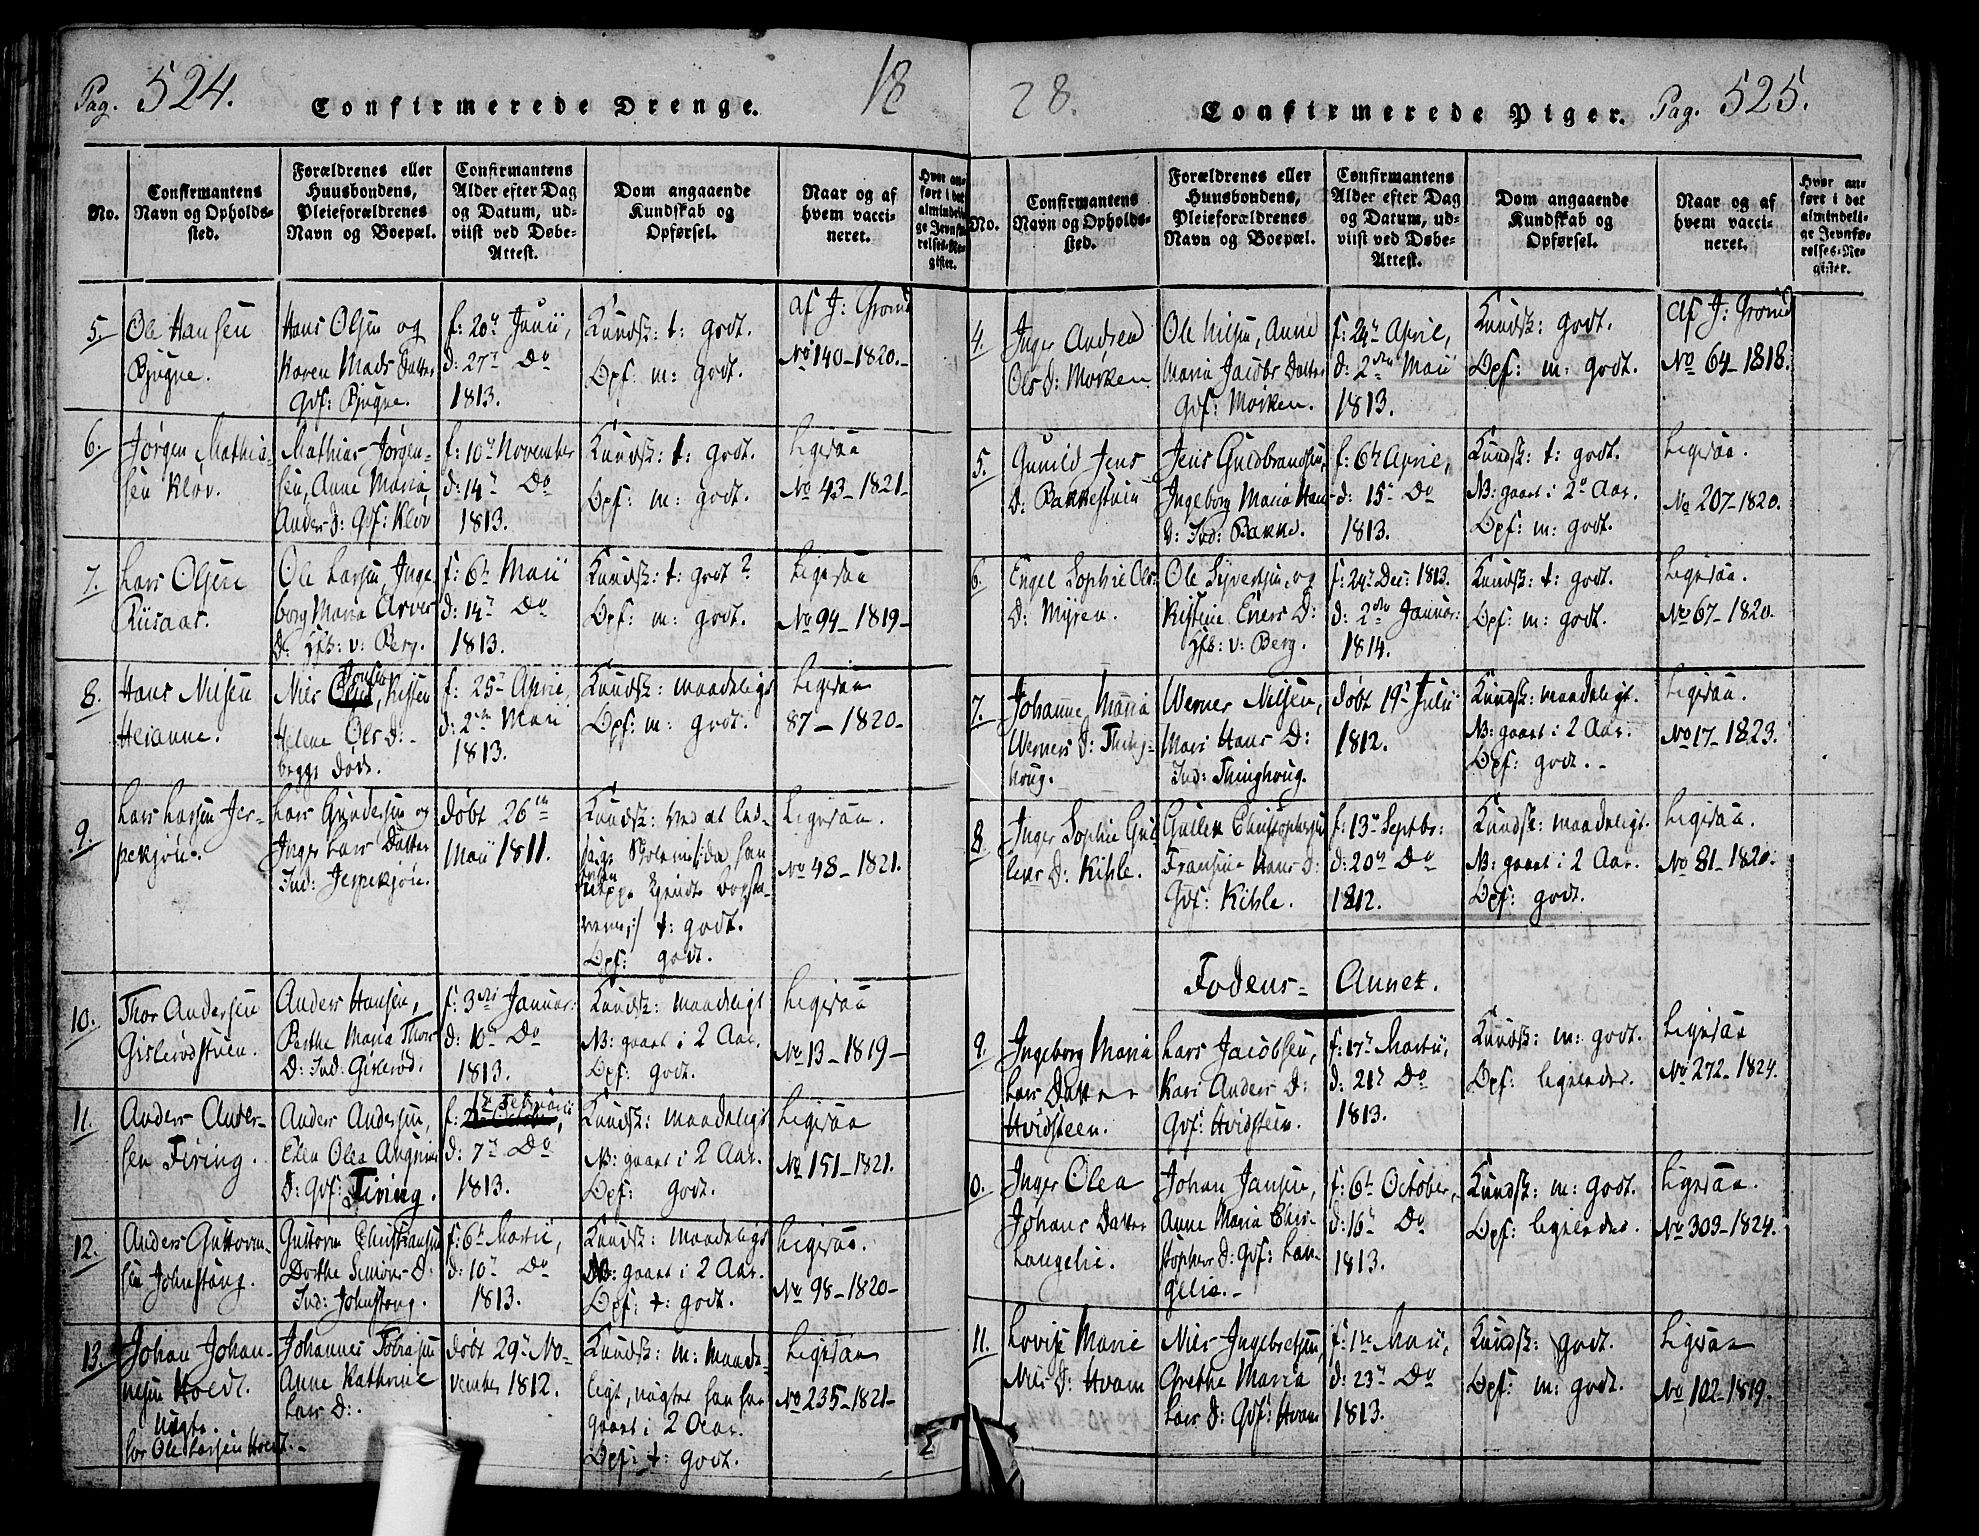 Pag. 524.
Confirmerede Drenge.
18
No.
Confirmantens
Navn og Opholds-
sted.
Forældrenes eller
Huusbondens,
Pleieforældrenes
Navn og Boepæl.
Confirmantens
Alder efter Dag
og Datum, ud-
viist ved Døbe-
Attest.
Dom angaaende
Kundskab og
Opførsel.
Naar og af
hvem vacci-
neret.
Hvor an-
ført i det
almindeli-
ge Jevnfø-
relses-Re-
gister.
5.
Ole Hansen
Bjugne.
Hans Olsen og
Karen Mads Datter
Gdf: Bjugne.
f: 20de Junii,
d: 27de Do
1813.
Kundsk: t: godt.
Opf: m: godt.
af J: Grønd
No 140-1820.-
6.
Jørgen Mathia-
sen Kløv.
Mathias Jørgen-
sen, Anne Maria,
Anders D: Gdf: Kløv
f: 10de November
d: 14de Do
1813.
Kundsk: t: godt.
Opf: m: godt.
Ligesaa
No 43-1821-
7.
Lars Olsen
Riisaas.
Ole Larsen, Inge
borg Maria Arves
D: Hfs: v: Berg.
f: 6te Maii
d: 14de Do
1813.
Kundsk: t: godt?
Opf: m: godt.
Ligesaa
No 94-1819-
8.
Hans Nilsen
Heianne.
Jonsen
Niels, Kisten
Helene Ols D:-
begge døde.
f: 25de April,
d: 2den Maii
1813.
Kundsk: maadeligt
Opf: m: godt.
Ligesaa
87-1820-
9.
Lars Larsen Jes-
pekjøn.
Lars Gundersen og
Inger Lars Datter
Ind: Jespekjøn.
døbt 26de
Maii 1811.
Kundsk: ved at led-
sages
neppe kjendte Bogsta-
verne;/ t: godt.
Opf: godt.
Ligesaa.
No 48-1821.
10.
Thor Andersen
Gislerødstuen.
Anders Hansen,
Berthe Maria Thor
D: Ind: Gislerød.
f: 3die Januar:
d: 10de Do
1813.
Kundsk: maadeligt
NB: gaaet i 2 Aar.
Opf: godt.
Ligesaa
No 13-1819-
11.
Anders Ander-
sen Firing.
Anders Andersen,
Elen Olea
D: Gdf: Firing.
f: 1te Februarii
d: 7de Do
1813.
Kundsk: maadeligt
NB: gaaet i 2 Aar.
Opf: godt.
Ligesaa
No 151-1821.
12.
Anders Guttorm-
sen Johnstang.
Guttorm Christiansen
Dorthe Simons D:
Ind: Johnstang.
f: 6te Martii,
d: 10de Do
1813.
Kundsk: maadeligt
NB: gaaet i 2 Aar.
Opf: t: godt.
Ligesaa.
No 98-1820-
13.
Johan Johan-
nesen Hoedt.
Nøgte.
hos Ole Larsen Hoedt.-
Johannes Tobiasen
Anne Kathrine
Lars D:.
døbt 29de No-
vember 1812.
Kundsk: m: maade-
ligt, uagtet han har
gaaet i 2 Aar.
Opf: t: godt.
Ligesaa
No 235-1821-
28.
Confirmerede Piger.
Pag. 525.
No.
Confirmantens
Navn og Opholds-
sted.
Forældrenes eller
Huusbondens,
Pleieforældrenes
Navn og Boepæl.
Confirmantens
Alder efter Dag
og Datum, ud-
viist ved Døbe-
Attest.
Dom angaaende
Kundskab og
Opførsel.
Naar og af
hvem vacci-
neret.
Hvor an-
ført i det
almindeli-
ge Jevnfø-
relses-Re-
gister.
4.
Inger Andrea
Ols D: Morken
Ole Nilsen, Anne
Maria Jacobs Datter
Gdf: Morken.
f: 24de April,
d: 2den Maii
1813.
Kundsk: godt.
Opf: m: godt.
af J: Grønd
No 64-1818.
5.
Gunild Jens
D: Bakkestuin
Jens Guldbrandsen,
Ingeborg Maria Hans
D: Ind: Bakke.
f: 6te April,
d: 15de Do
1813.
Kundsk: t: godt.
NB: gaaet i 2de Aar.
Opf: m: godt.
Ligesaa.
No 207-1820.
6.
Engel Sophie Ols
D: Myren.
Ole Syversen, og
Kistine Eners D:
Hfs: v: Berg.
f: 24de Dec: 1813.
d: 2den Januar:
1814.
Kundsk: t: godt.
Opf: m: godt.
Ligesaa.
No 67-1820.
7.
Johanne Maria
Werners D: Thing-
houg.
Werner Nilsen,
Mari Hans D:
Ind: Thinghoug.
døbt 19de Julii
1812.
Kundsk: maadeligt.
NB: gaaet i 2 Aar.
Opf: godt.-
Ligesaa.
No 17-1823.
8.
Inger Sophie Gul
leks D: Kihle.
Gullek Christophersen
Fransine Hans D:
Gdf: Kihle.
f: 13de Septbr:
d: 20de Do
1812.
Kundsk: maadeligt.
NB: gaaet i 2 Aar.
Opf: godt.
Ligesaa.
No 81-1820.
Fodens- Annex.
9.
Ingeborg Maria
Lars Datter
Hvidsteen.
Lars Jacobsen,
Kari Anders D:
Gdf: Hvidsteen.
f: 17de Martii,
d: 21de Do
1813.
Kundsk: m: godt.
Opf: ligeledes.
Ligesaa
No 272-1824.
0.
Inger Olea
Johans Datter
Langelie.
Johan Jansen,
Anne Maria Chri-
stophers D: Gdf: Lan-
gelie.-
f: 6te October,
d: 16de Do
1813.
Kundsk: m: godt.
Opf: ligeledes.
Ligesaa.
No 303-1824.
11.
Lovise Marie
Niels D: Hvam
Niels Ingebretsen,
Grethe Maria
Lars D: Gdf: Hvam
f: 1ste Maii,
d: 23de Do
1813.
Kundsk: godt.
Opf: m: godt.
Ligesaa
No 102-1819.